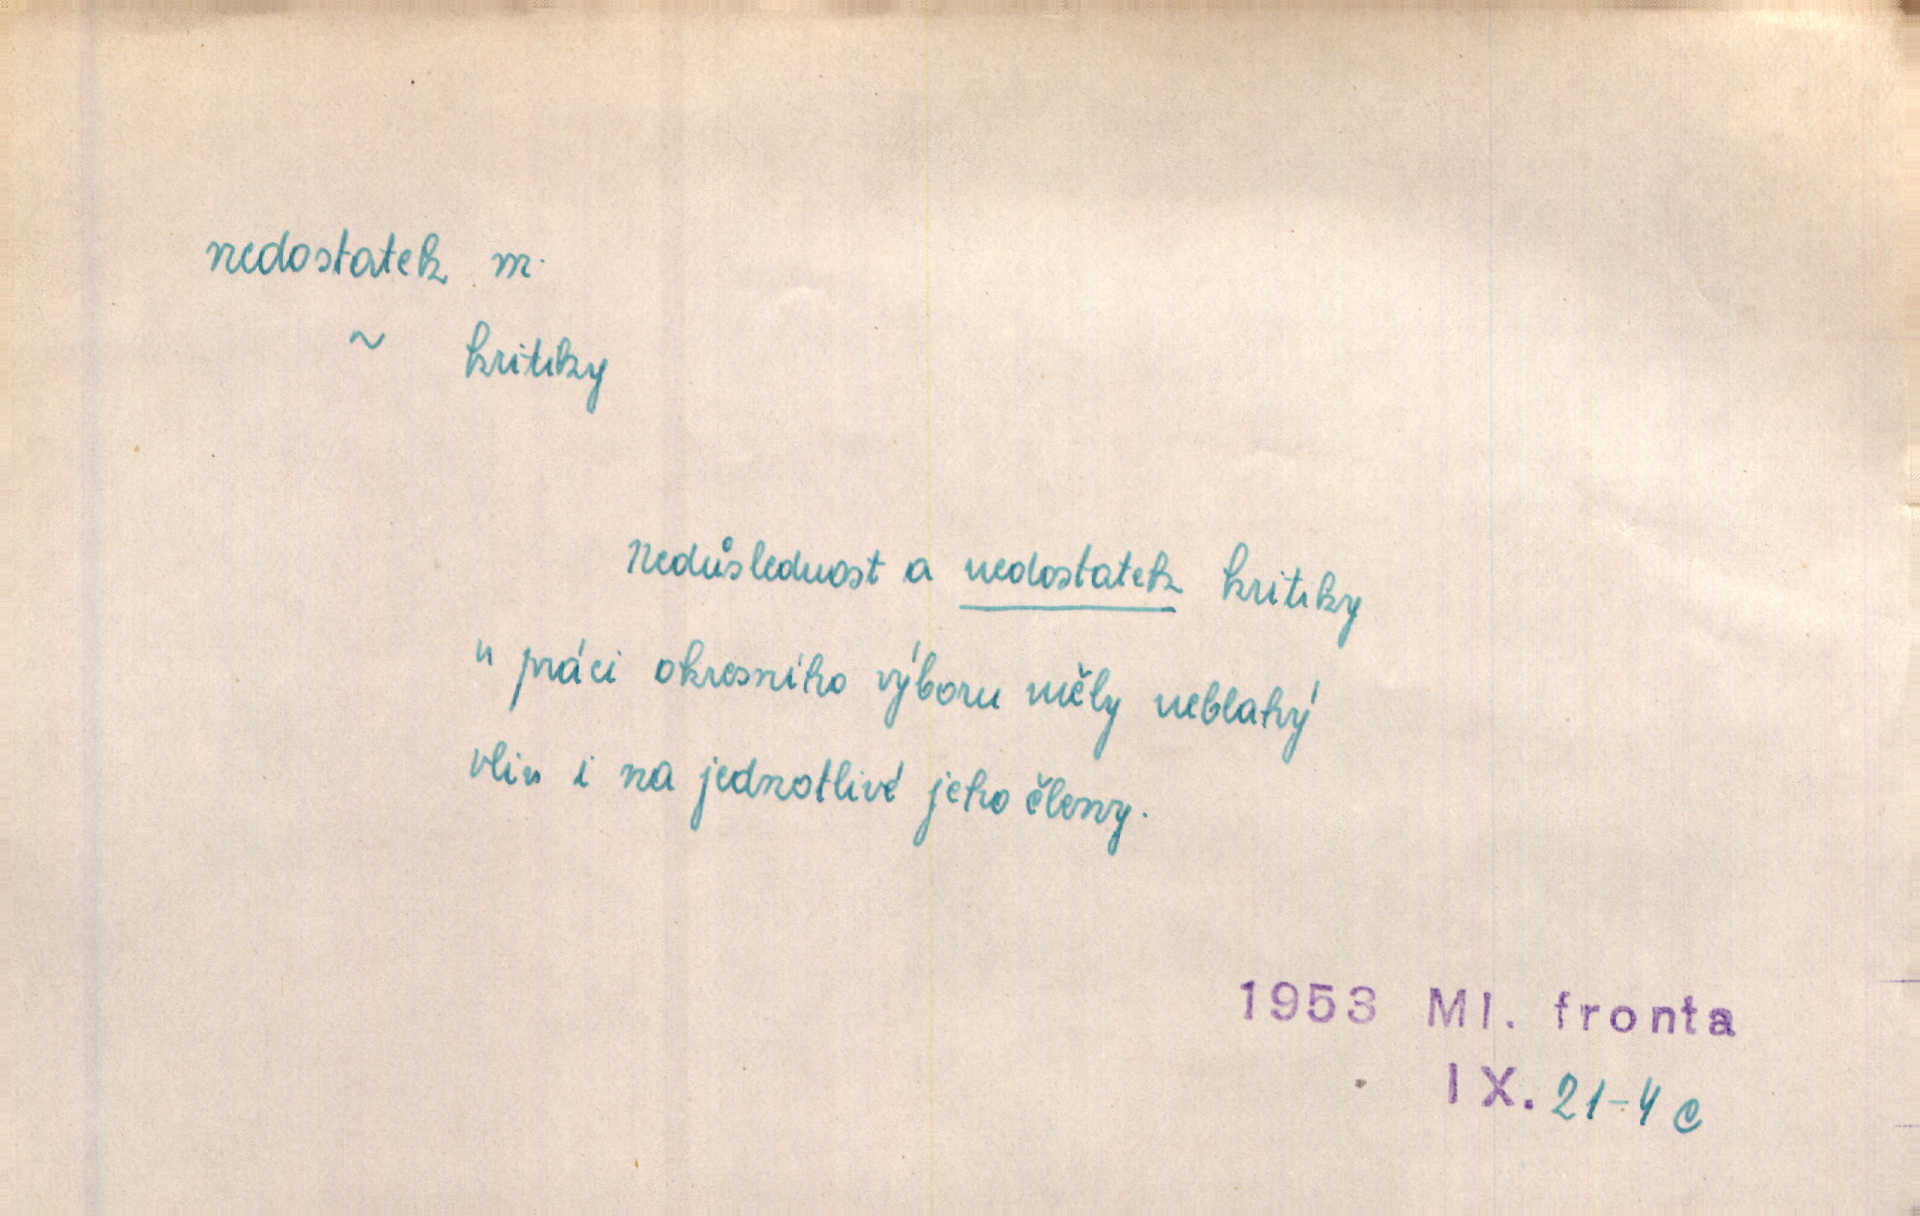 nedostatek m.
~ kritiky
Nedůslednost a nedostatek kritiky
v práci okresního výboru měly neblahý
vliv i na jednotlivé jeho členy.
1953 Ml. fronta
IX. 21-4 c